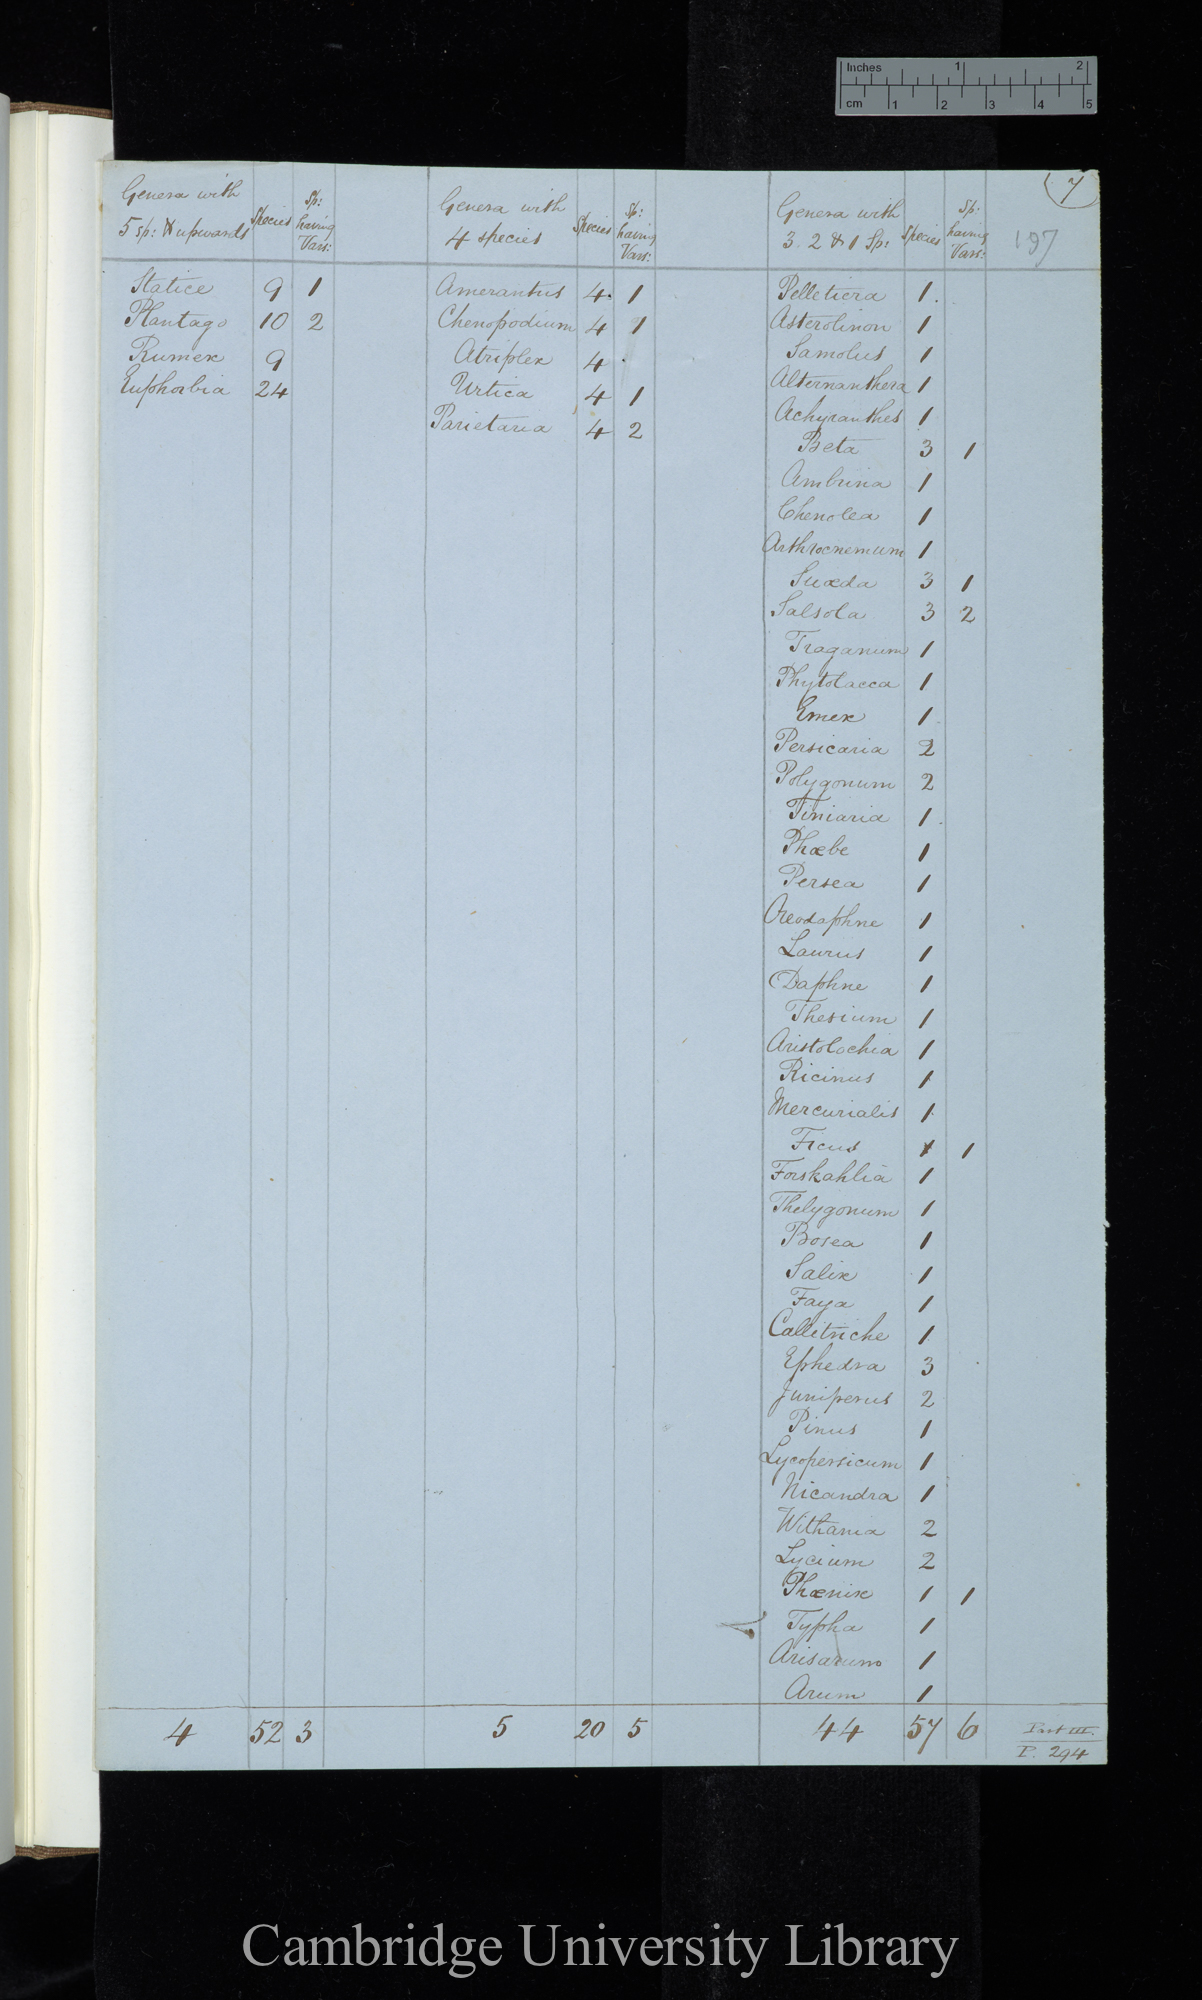 Inches 1 2
cm 1 2 3 4 5
(7
197
Genera with 5 sp: & upwards | Species | Sp: having Vars:
Statice 9 1
Plantago 10 2
Rumex 9
Euphorbia 24
4 52 3
Genera with 4 species | Species | Sp: having Vars:
Amerantus 4. 1
Chenopodium 4 1
Atriplex 4
Urtica 4 1
Parietaria 4 2
5 20 5
Genera with 3. 2 & 1 Sp: | Species | Sp: having Vars:
Pelletiera 1.
Asterolinon 1
Samolus 1
Alternanthera 1
Achyranthes 1
Beta 3 1
Ambrina 1
Chenolea 1
Arthrocnemum 1
Suæda 3 1
Salsola 3 2
Traganum 1
Phytolacca 1
Emex 1
Persicaria 2
Polygonum 2
Tiniaria 1
Phœbe 1
Persea 1
Oreodaphne 1
Laurus 1
Daphne 1
Thesium 1
Aristolochia 1
Ricinus 1
Mercurialis 1
Ficus 1 1
Forskahlia 1
Thelygonum 1
Bosea 1
Salix 1
Faya 1
Callitriche 1
Ephedra 3
Juniperus 2
Pinus 1
Lycopersicum 1
Nicandra 1
Withania 2
Lycium 2
Phœnix 1 1
Typha 1
Arisarum 1
Arum 1
44 57 6
Part III.
P. 294
Cambridge University Library